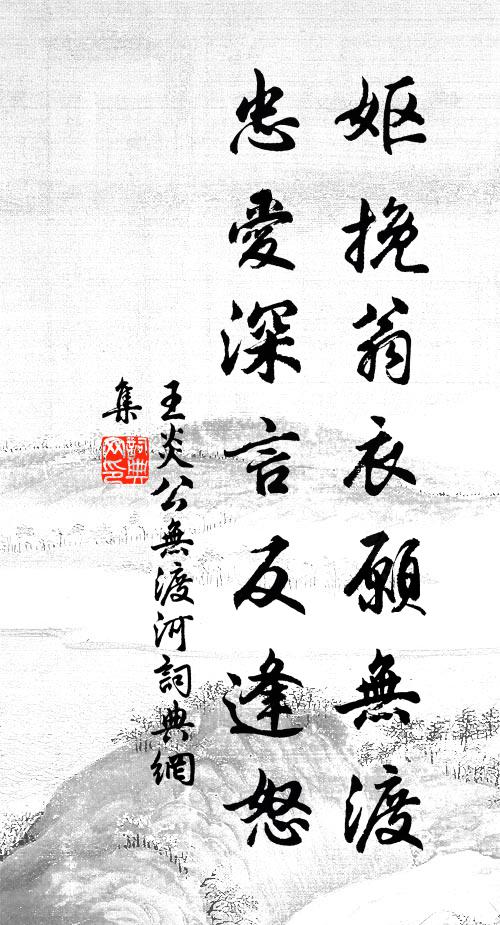 妪挽翁衣願無渡
忠愛深言反逢怒
王炎公無渡河詞典網
集
詞典
网印